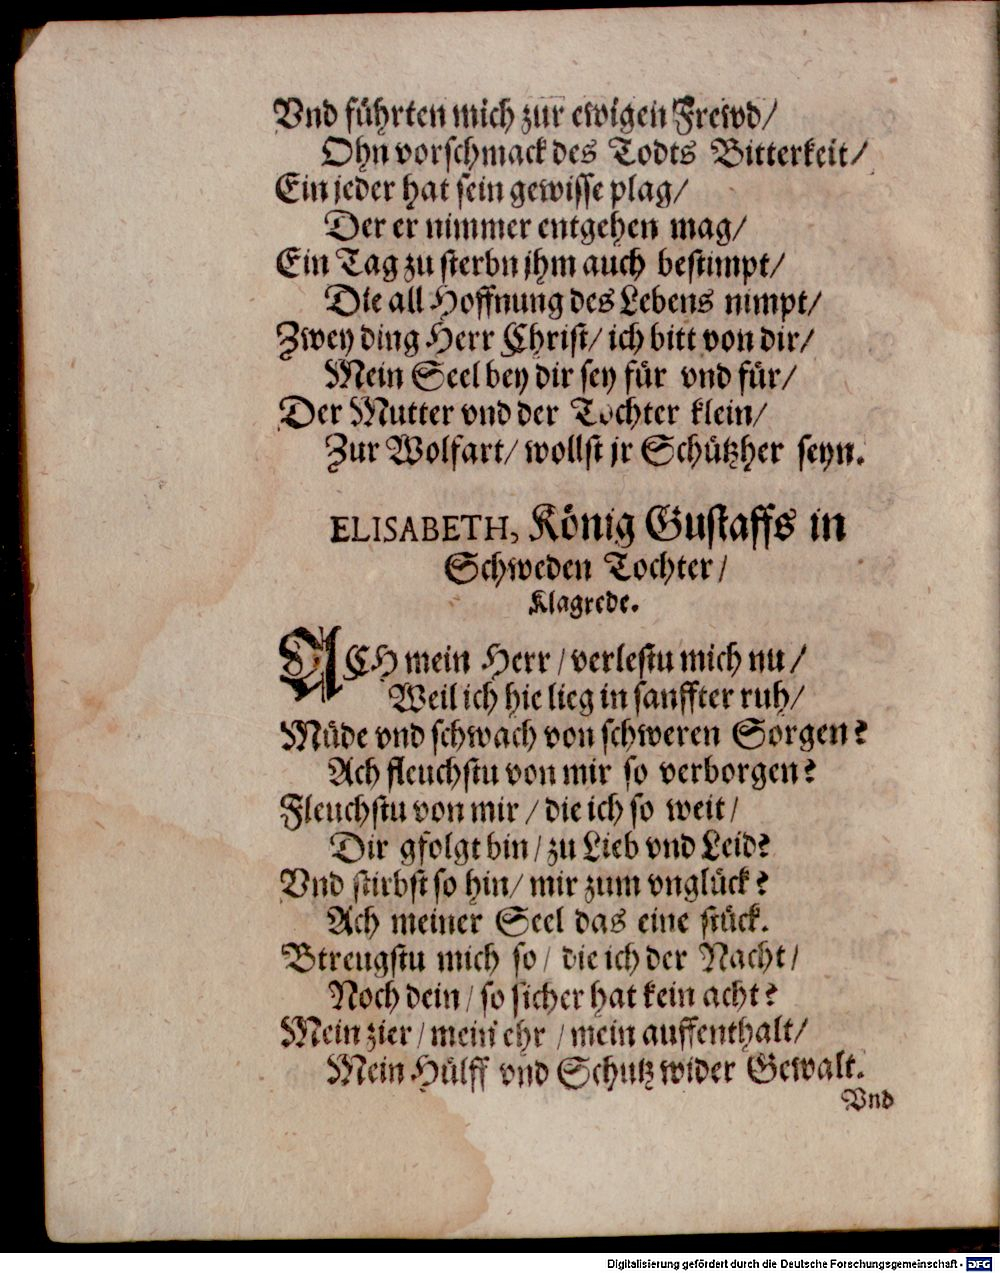 Vnd führten mich zur ewigen Frewd/
Ohn vorschmack des Todts Bitterkeit/
Ein jeder hat sein gewisse plag/
Der er nimmer entgehen mag/
Ein Tag zu sterbn jhm auch bestimpt/
Die all Hoffnung des Lebens nimpt/
Zwey ding Herr Christ/ ich bitt von dir/
Mein Seel bey dir sey für vnd für/
Der Mutter vnd der Tochter klein/
Zur Wolfart/ wollst jr Schützher seyn.
ELISABETH, König Gustaffs in
Schweden Tochter/
Klagrede.
ACH mein Herr/ verlestu mich nu/
Weil ich hie lieg in sanffter ruh/
Müde vnd schwach von schweren Sorgen?
Ach fleuchstu von mir so verborgen?
Fleuchstu von mir/ die ich so weit/
Dir gfolgt bin/ zu Lieb vnd Leid?
Vnd stirbst so hin/ mir zum vnglück?
Ach meiner Seel das eine stück.
Btreugstu mich so/ die ich der Nacht/
Noch dein/ so sicher hat kein acht?
Mein zier/ mein ehr/ mein auffenthalt/
Mein Hülff vnd Schutz wider Gewalt.
Vnd
Digitalisierung gefördert durch die Deutsche Forschungsgemeinschaft - DFG